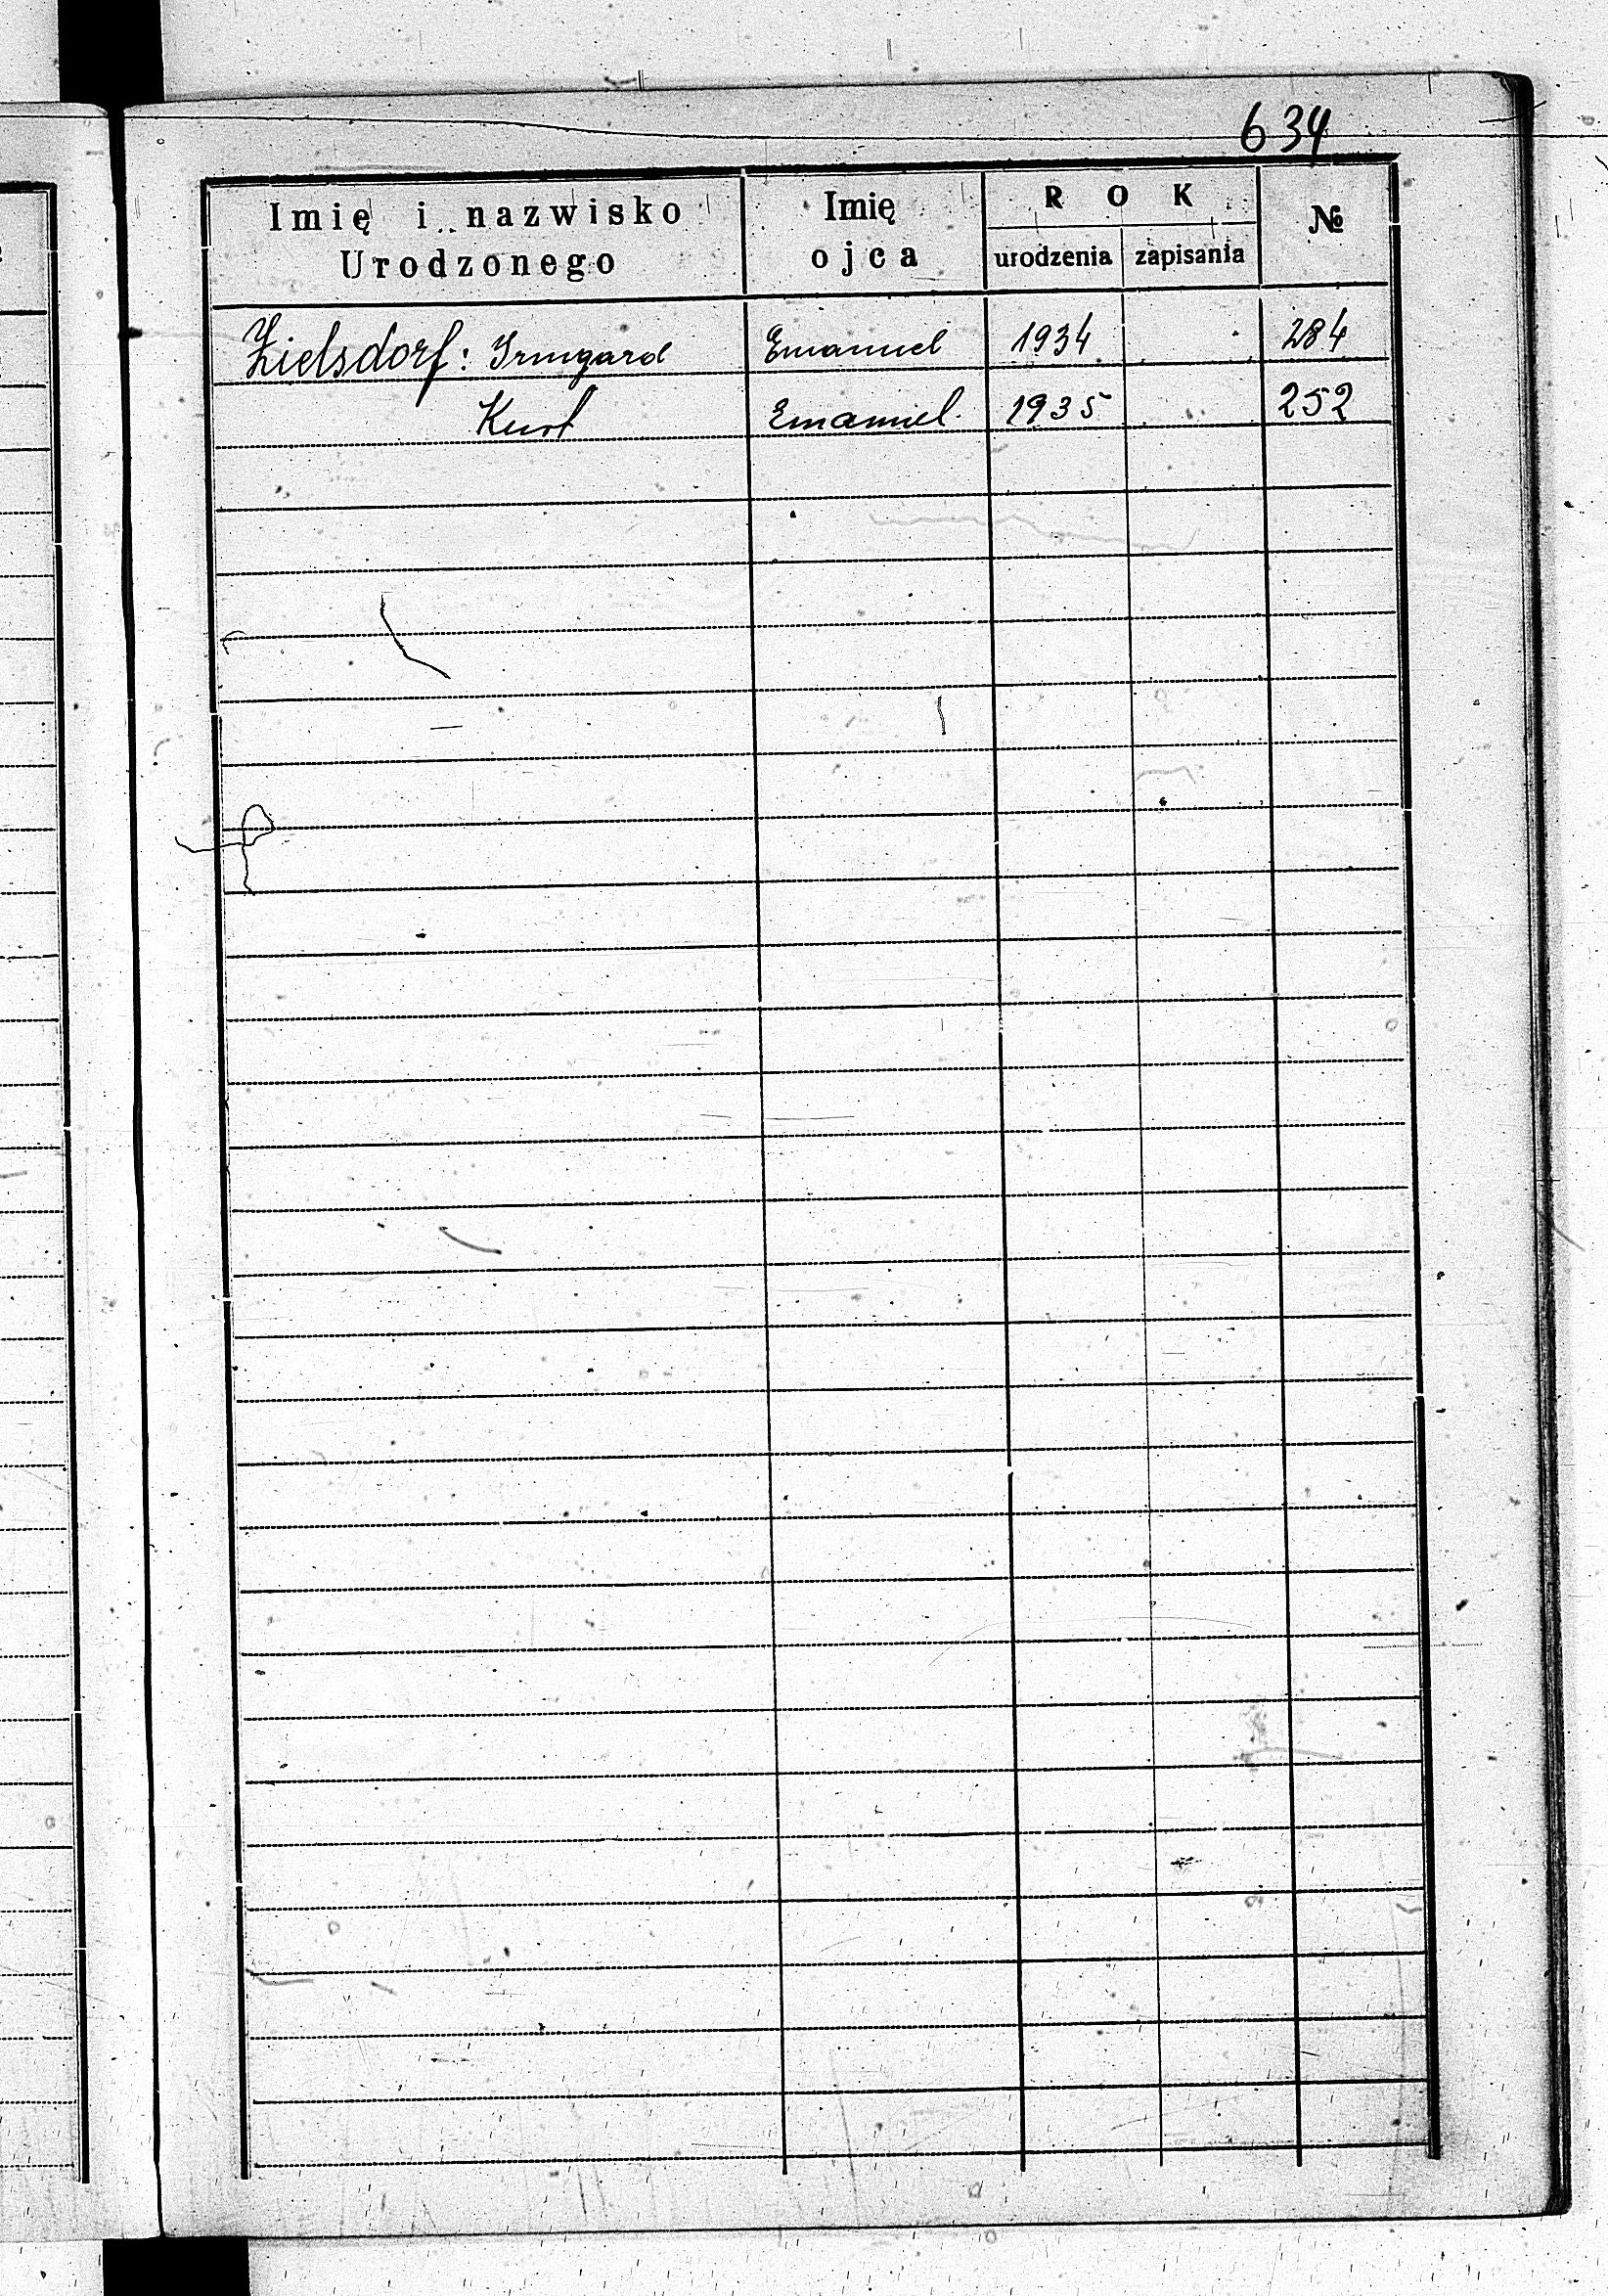 634
Imię i nazwisko Urodzonego Imię ojca ROK urodzenia zapisania №
Zielsdorf: Irmgard Emanuel 1934 284
Kurt Emanuel 1935 252